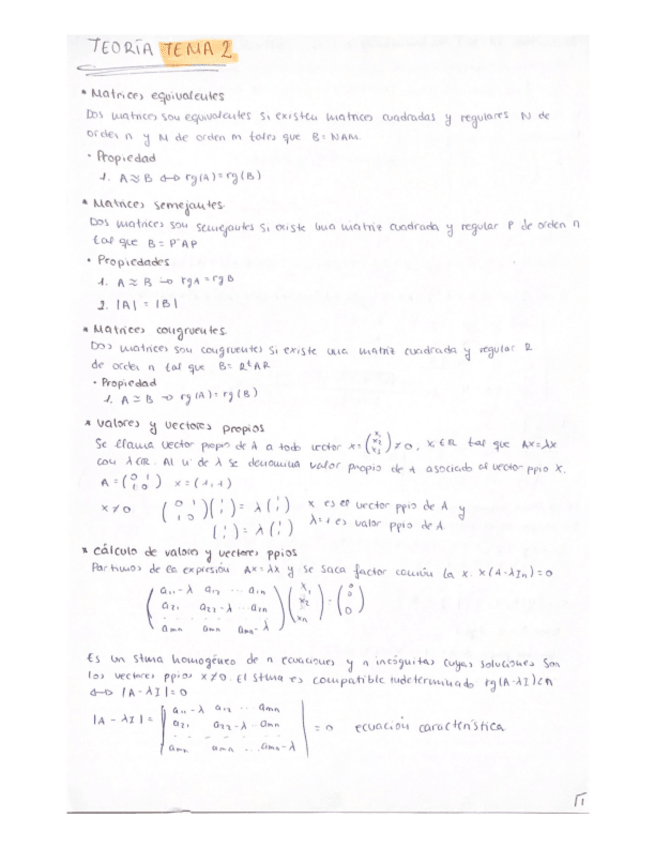 TEORÍA TEMA 2
* Matrices equivalentes
Dos matrices son equivalentes si existen matrices cuadradas y regulares N de
orden n y M de orden m tales que B=NAM.
• Propiedad
1. A≈B ⇔ rg(A)=rg(B)
* Matrices semejantes.
Dos matrices son semejantes si existe una matriz cuadrada y regular P de orden n
tal que B = P⁻AP
• Propiedades
1. A≈B → rgA=rgB
2. |A| = |B|
* Matrices congruentes.
Dos matrices son congruentes si existe una matriz cuadrada y regular R
de orden n tal que B= RᵗAR
• Propiedad
1. A≅B → rg(A)=rg(B)
* Valores y vectores propios
Se llama vector propio de A a todo vector x=(x₁ x₂ x₃)≠0, xᵢ∈ℝ tal que Ax=λx
con λ∈ℝ. Al nº de λ se denomina valor propio de A asociado al vector ppio x.
A=(0 1 1 0) x=(1,1)
x≠0 (0 1 1 0)(1 1)=λ(1 1) x es el vector ppio de A y
(1 1)=λ(1 1) λ=1 es valor ppio de A
* Cálculo de valores y vectores ppios
Partimos de la expresión Ax=λx y se saca factor común la x. x(A-λIn)=0
(a₁₁-λ a₁₂ ... a₁n) (x₁) (0)
(a₂₁ a₂₂-λ ... a₂n) (x₂) = (0)
(amn amn amn-λ) (xn) (0)
Es un stma homogéneo de n ecuaciones y n incógnitas cuyas soluciones son
los vectores ppios x≠0. El stma es compatible indeterminado rg(A-λI)<n
⇔ |A-λI|=0
|A-λI|= |a₁₁-λ a₁₂ ... amn|
|a₂₁ a₂₂-λ ... amn| = 0 ecuación característica
|amn amn ... amn-λ|
1